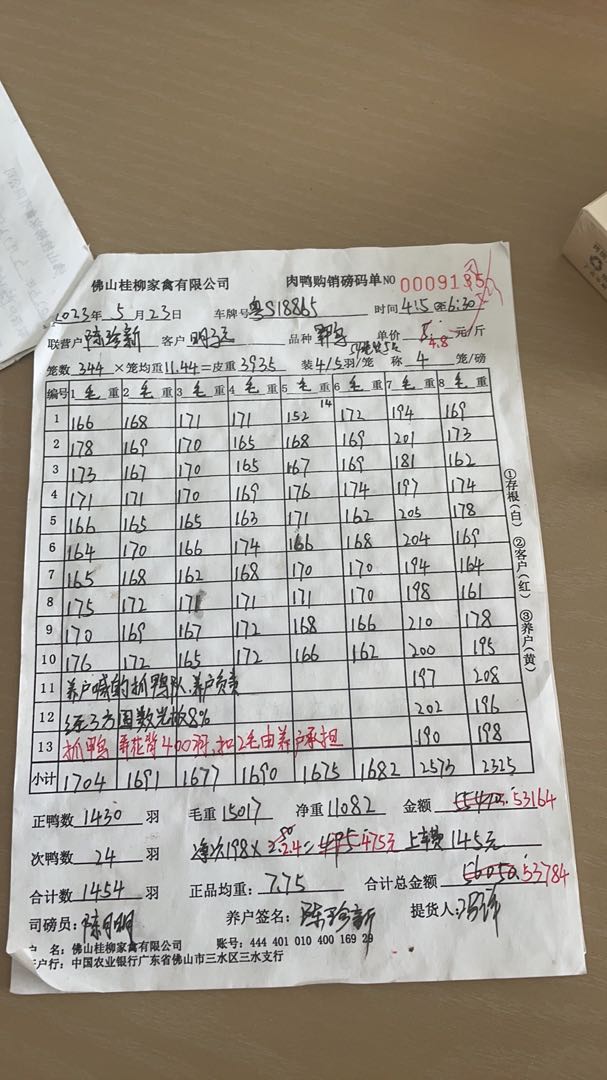 佛山桂柳家禽有限公司 肉鸭购销磅码单 NO 0009135
2023年 5月23日 车牌号 粤S18865 时间 4:5 6:30
联营户 陈珍新 客户 品种 单价 4.8 元/斤
笼数 344 ×笼均重 11.44 =皮重 3935 装 4/5 羽/笼 称 4 笼/磅
编号 1 毛 重 2 毛 重 3 毛 重 4 毛 重 5 毛 重 6 毛 重 7 毛 重 8 毛 重
1 166 168 171 171 152 14 172 194 169
2 178 169 170 165 168 169 201 173
3 173 167 170 165 167 169 181 162
4 171 171 170 169 176 174 197 174
5 166 165 165 163 171 162 205 178
6 164 170 166 174 166 168 204 169
7 165 168 162 168 170 170 194 164
8 175 172 171 171 171 170 198 161
9 170 169 167 172 168 166 210 178
10 176 172 165 172 166 162 200 195
11 养户喊的抓鸭队,养户负责 197 208
12 8% 202 196
13 抓鸭 弄花背400羽,扣2毛由养户承担 190 198
小计 1704 1691 1677 1690 1675 1682 2573 2325
正鸭数 1430 羽 毛重 15017 净重 11082 金额 53164
次鸭数 24 羽 198× 2.4 475 上车费 145元
合计数 1454 羽 正品均重: 7.75 合计总金额 53784
司磅员: 陈月明 养户签名: 陈珍新 提货人:
户 名: 佛山桂柳家禽有限公司 账号: 444 401 010 400 169 29
开户行: 中国农业银行广东省佛山市三水区三水支行
①存根(白) ②客户(红) ③养户(黄)